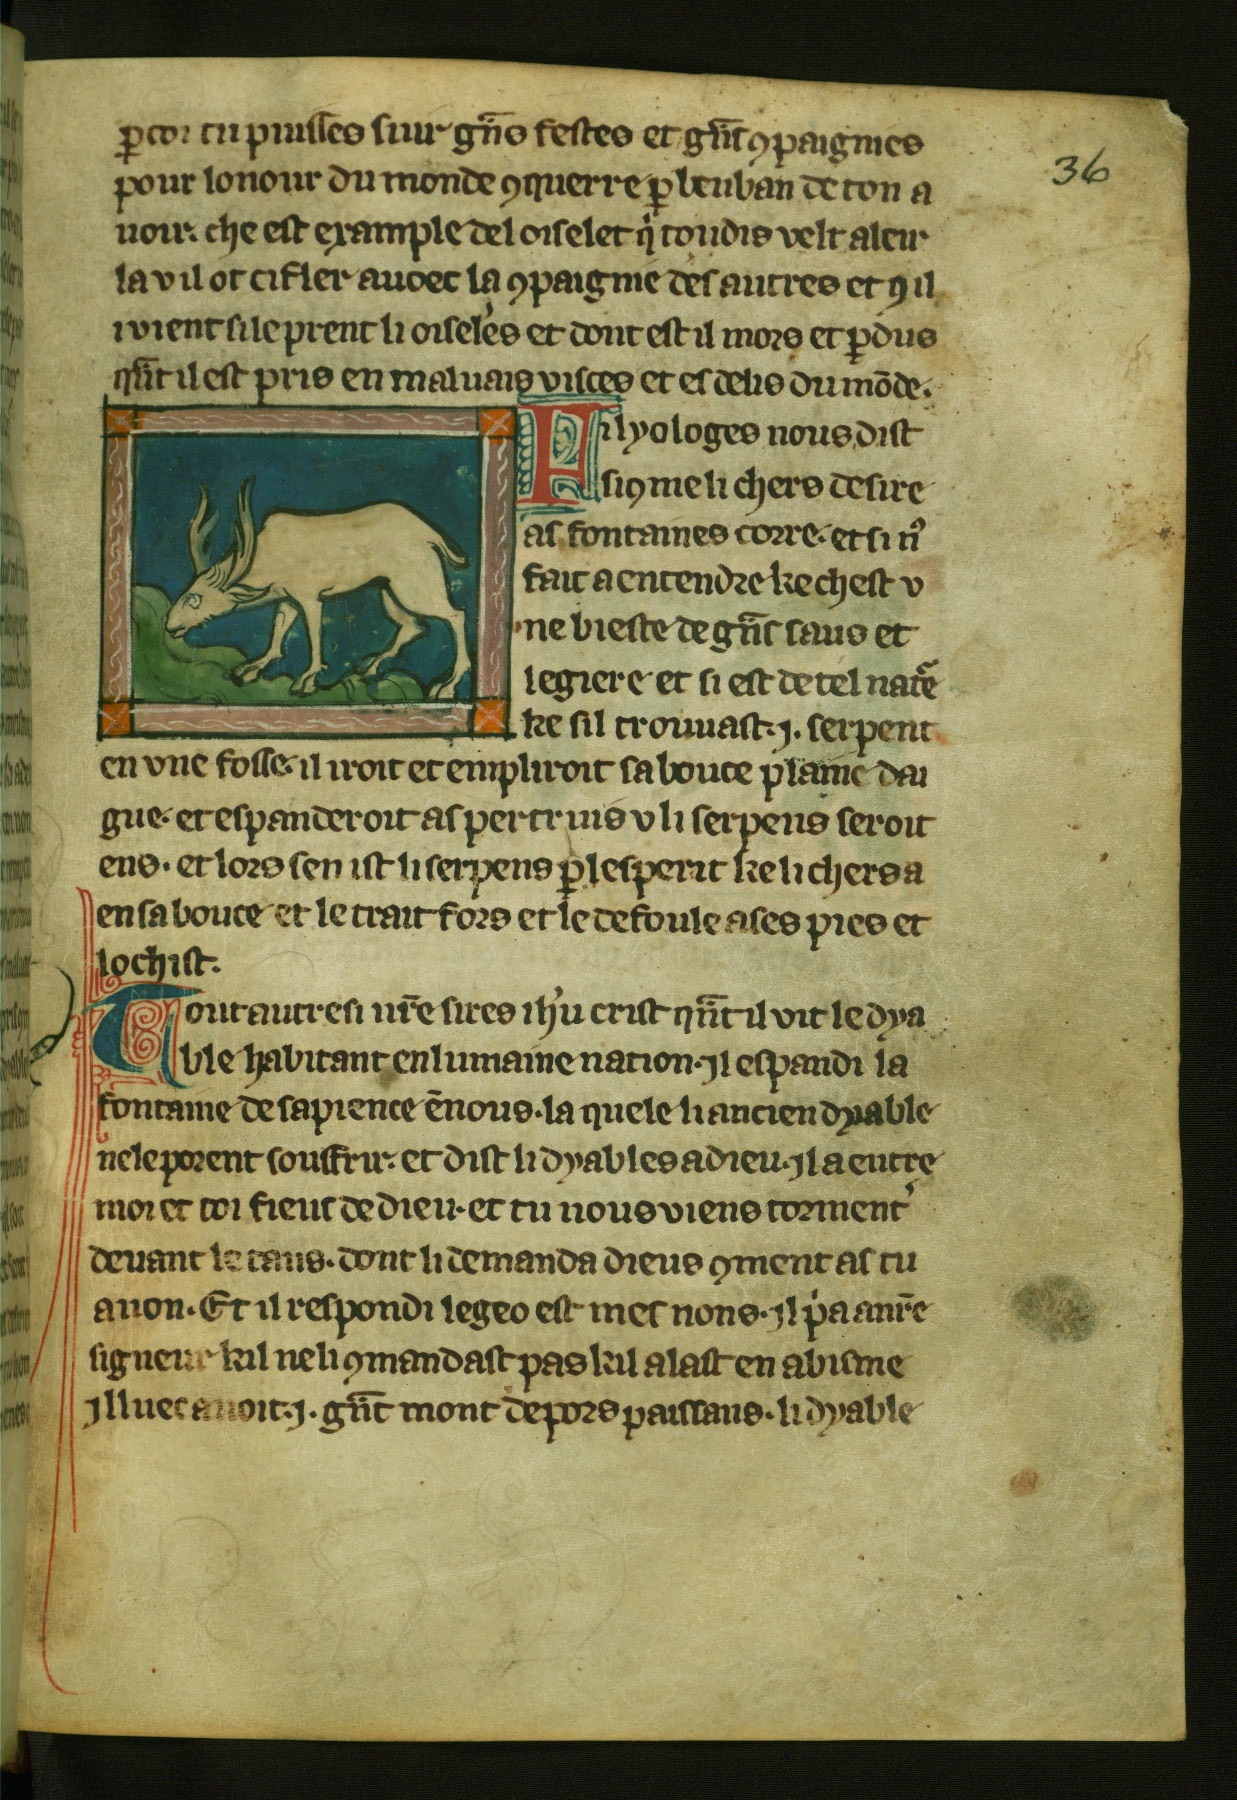 ꝑcoi tu puisses siur gñs festes et gñt ꝯpaignies
pour lonour du monde ꝯquerre ꝑ beuban de ton a
uoir. che est example del oiselet q̇ toudis velt aleir
la v il ot cifler auoec la ꝯpaignie des autres et ꝯ il
i vient si le prent li oiseleˢ et dont est il mors et ꝑdus
qn̄t il est pris en maluais visces et es delis du mōde.
36
Filyologes nous dist
si ꝯme li chers desire
as fontaines corre. et si nꝰ
fait a entendre ke chest v
ne bieste de gñt saus et
legiere et si est de tel natr̃e
ke sil trouuast .j. serpent
en vne fosse. il iroit et empliroit sa bouce plaine dai
gue. et espanderoit as pertruis v li serpens seroit
ens. et lors sen ist li serpens ꝑ lesperit ke li chers a
en sa bouce et le trait fors et le defoule a ses pies et
lochist.
Tout autresi nr̄e sires ih'u crist qn̄t il vit le dya
ble habitant en lumaine nation. Il espandi la
fontaine de sapience ē nous. la quele li ancien dyable
ne le porent souffrir. et dist li dyables a dieu. Il a entre
moi et toi fieus de dieu. et tu nous viens torment'
deuant le tans. dont li demanda dieus ꝯment as tu
a non. Et il respondi legeo est mes nons. Il p̍a a nr̄e
signeur kil ne li ꝯmandast pas kil alast en abisme
Illuec auoit .j. gñt mont de pors paissans. li dyable